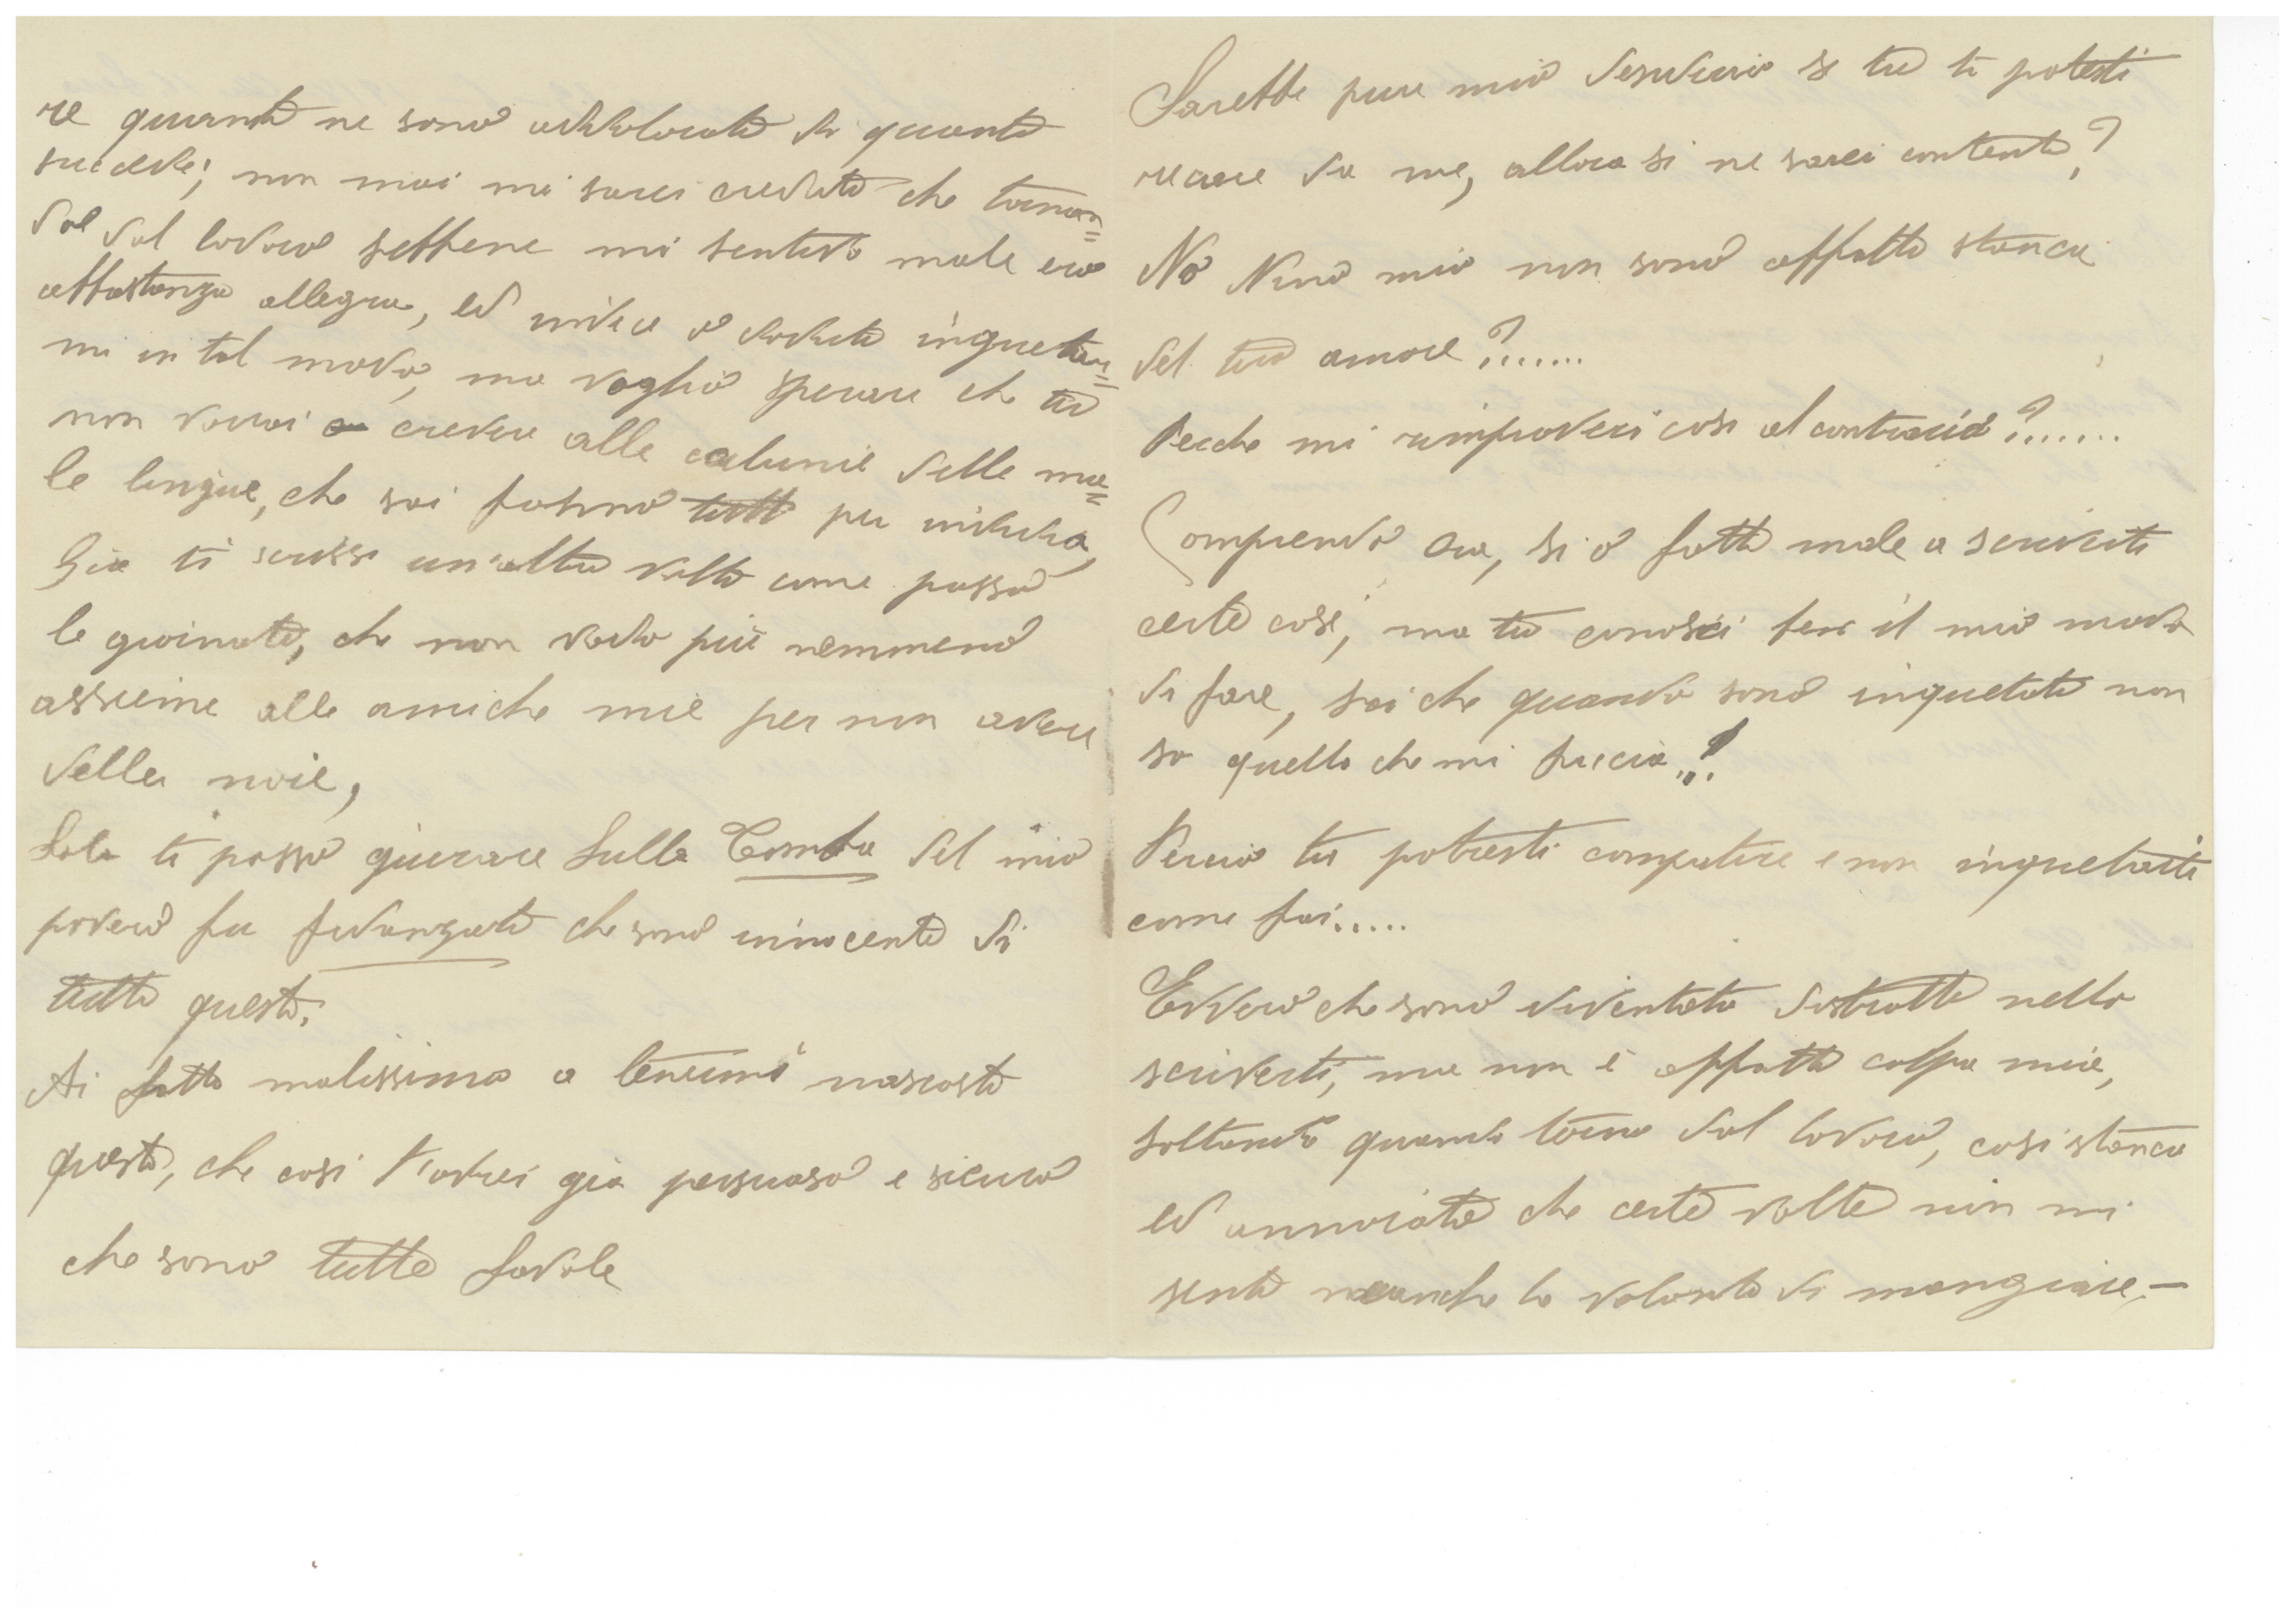 re quanto ne sono addolorata di quanto
succede; non mai mi sarei creduta che tornan=
do dal lavoro sebbene mi sentivo male ero
abbastanza allegra, ed invece o dovuto inquetar=
mi in tal modo, ma voglio sperare che tu
non vorrai credere alle calunie delle ma=
le lingue, che sai fanno tutto per invidia,
Gia ti scrissi un'altra volta come passo
le giornate, che non vado più nemmeno
assieme alle amiche mie per non avere
delle noie,
Solo ti posso giurare sulla Tomba del mio
povero fu fidanzato che sono innocente di
tutto questo;
Ai fatto malissimo a tenermi nascosto
questo, che cosi t'avrei gia persuaso e sicuro
che sono tutte favole
Sarebbe pure mio desiderio se tu ti potesti
recare da me, allora si ne sarei contenta?
No Nino mio non sono affatto stanca
del tuo amore?.......
Perche mi rimproveri cosi al contrario?.......
Comprendo ora, si o fatto male a scriverti
certe cose, ma tu conosci bene il mio modo
di fare, sai che quando sono inquetata non
so quello che mi faccia..!
Percio tu potresti compatire e non inquetarti
come fai.....
Evvero che sono diventata distratta nello
scriverti, ma non è affatto colpa mia,
soltanto quando torno dal lavoro, cosi stanca
ed annoiata che certe volte non mi
sento neanche la volonta di mangiare,—